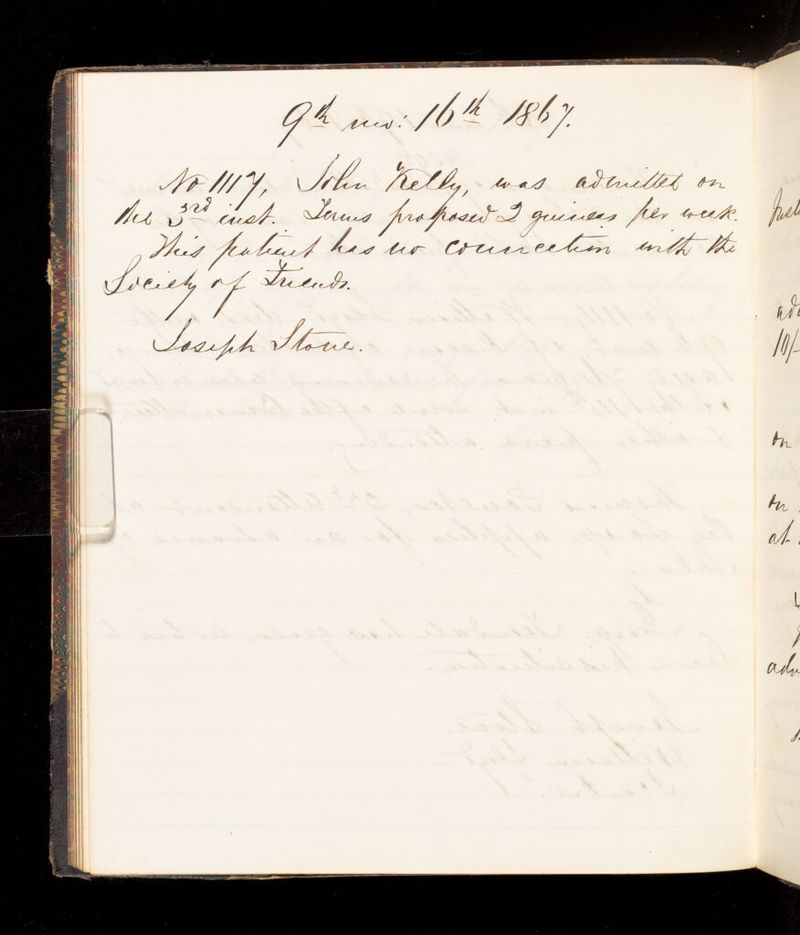 9th mo: 16th 1867.
No 1117, John Kelly, was admitted on
the 3rd inst. Terms proposed 2 guineas per week.
This patient has no connection with the
Society of Friends.
Joseph Stone.
on
on
at
10/-